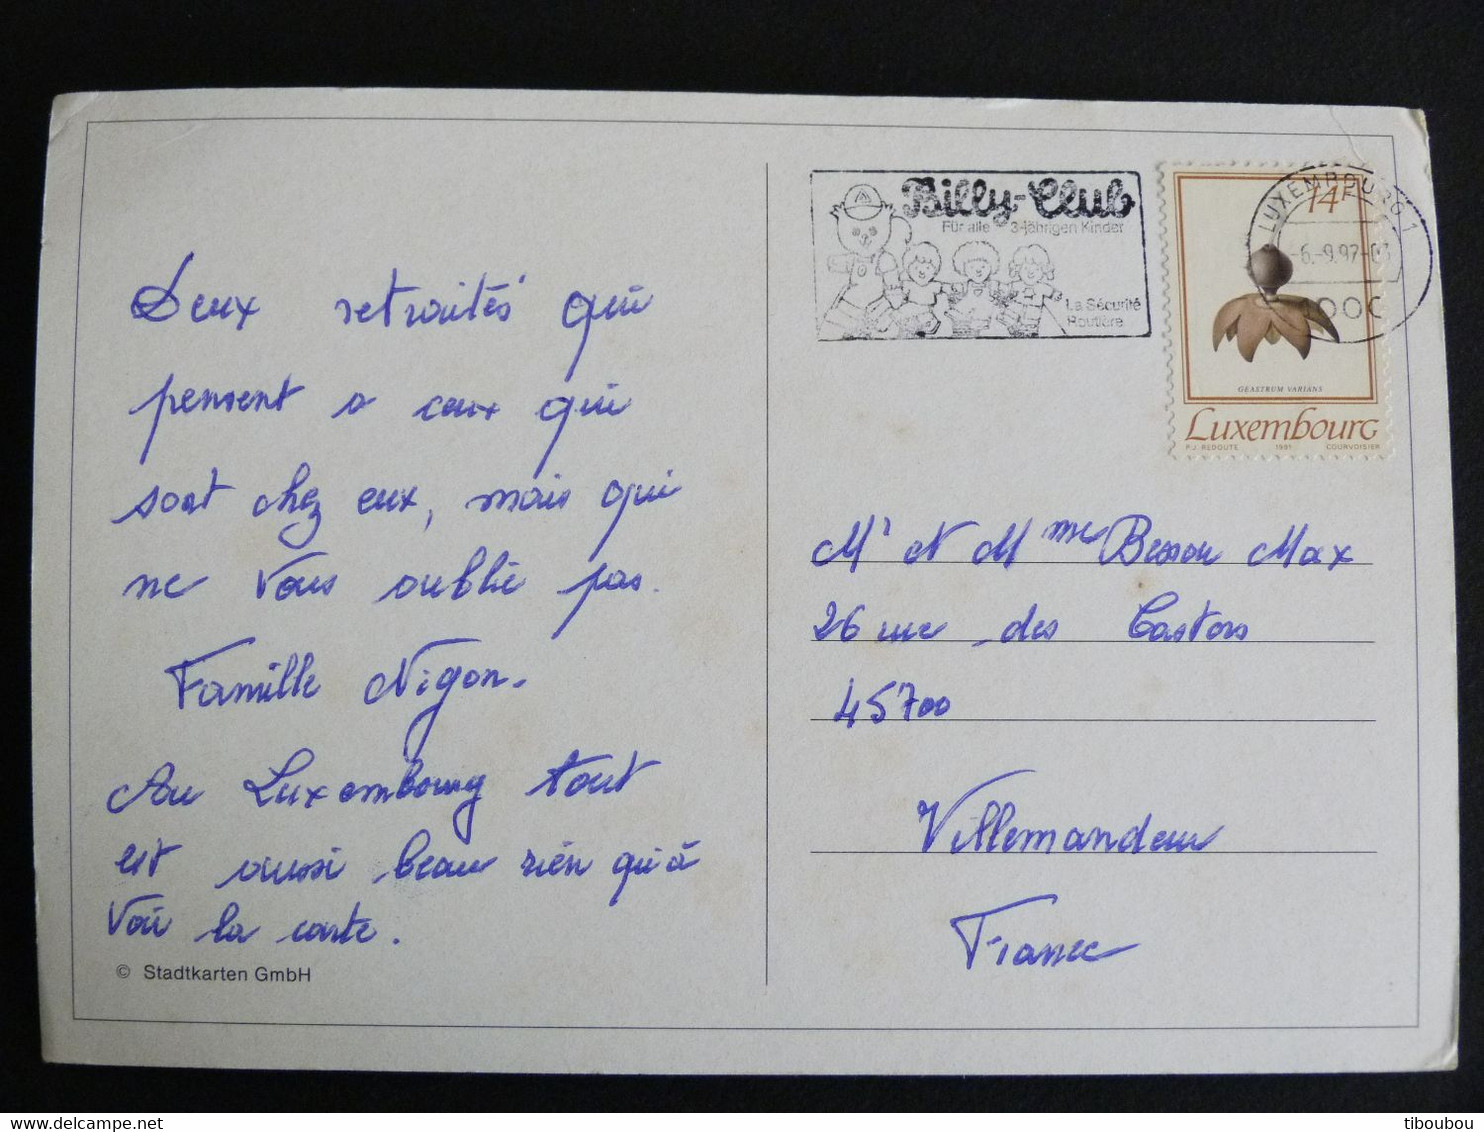 Deux retraités qui
pensent a ceux qui
sont chez eux, mais qui
ne vous oublie pas.
Famille Nigon.
Au Luxembourg tout
est aussi beau rien qu'à
voir la carte.
© Stadtkarten GmbH
Billy-Club
Für alle 3-jährigen Kinder
La Sécurité
Routière
LUXEMBOURG 1
-6.-9.97-
1000
14F
GEASTRUM VARIANS
Luxembourg
P.J. REDOUTE 1991 COURVOISIER
Mr et Mme Besson Max
26 rue des Castors
45700
Villemandeur
France
tiboubou